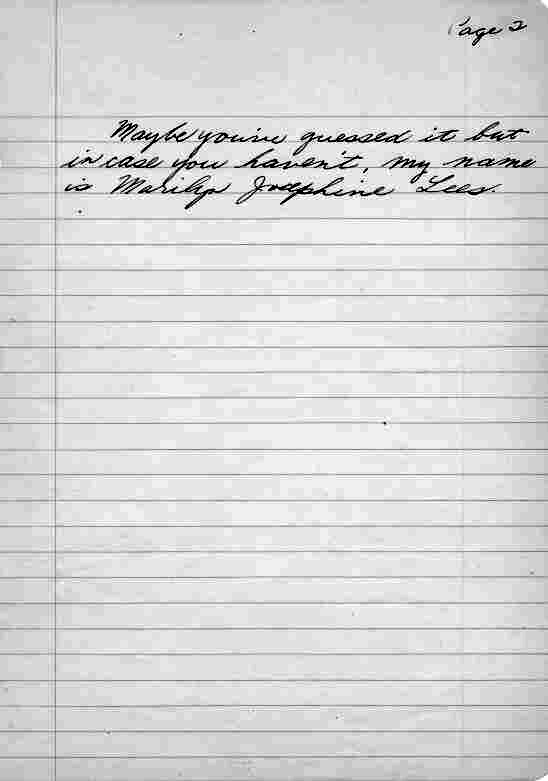 Page 2
Maybe you've guessed it but
in case you haven't, my name
is Marilyn Josephine Lees.